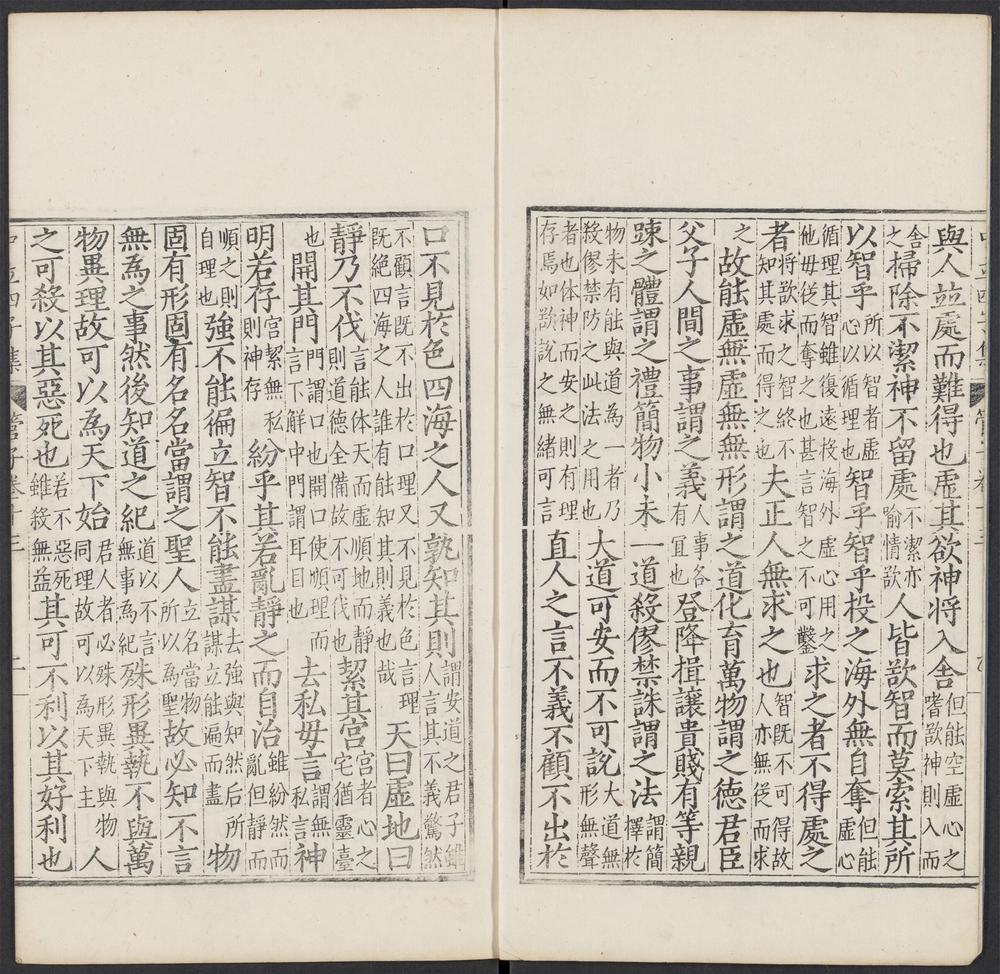 與人並處而難得也虛其欲神將入舍但能空虛心之嗜欲神則入而
舍之掃除不潔神不留處不潔亦喻情欲人皆欲智而莫索其所
以智乎所以智者虛心以循理也智乎智乎投之海外無自奪但能虛心
循理其智雖復遠投海外虛心用之他毋從而奪之也甚言智之不可鑿求之者不得處之
者將欲求之智終不知其處而得之也夫正人無求之也智既不可得故人亦無從而求
之故能虛無虛無無形謂之道化育萬物謂之德君臣
父子人間之事謂之義人事各有宜也登降揖讓貴賤有等親
踈之體謂之禮簡物小未一道殺僇禁誅謂之法謂簡擇於
物未有能與道為一者乃殺僇禁防之此法之用也大道可安而不可說大道無形無聲
者也体神而安之則有理存焉如欲說之無緒可言直人之言不義不顧不出於
口不見於色四海之人又孰知其則謂安道之君子雖人言其不義驚然
不顧言既不出於口理又不見於色言理既絕四海之人誰有能知其則義也哉天曰虛地曰
靜乃不伐言能体天而虛順地而靜則道德全備故不可伐也絜其宮宮者心之宅猶靈臺
也開其門門謂口也開口使順理而言下解中門謂耳目也去私毋言謂無私言神
明若存宮絜無私則神存紛乎其若亂靜之而自治雖紛然而亂但靜而
順之則自理也強不能徧立智不能盡謀去強與知然后所謀立能遍而盡物
固有形固有名名當謂之聖人立名當物所以為聖故必知不言
無為之事然後知道之紀道以不言無事為紀殊形異埶不與萬
物異理故可以為天下始君人者必殊形異執與物同理故可以為天下主人
之可殺以其惡死也若不惡死雖殺無益其可不利以其好利也